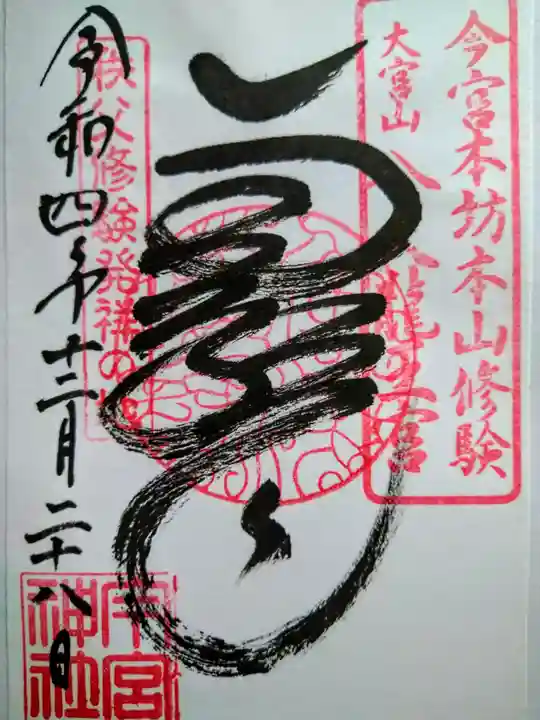 今宮本坊本山修験
大宮山 八大龍の宮
秩父修験発祥の地
令和四年十二月二十八日
今宮神社